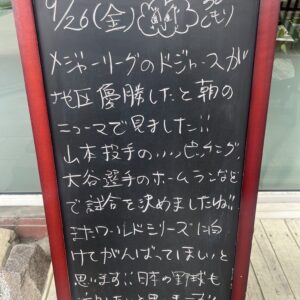 9/26(金)
メジャーリーグのドジャースが
地区優勝したと朝の
ニュースで見ました!!
山本投手の、、、ピッチング、
大谷選手のホームランなど
で試合を決めましたね!!
ワールドシリーズに向
けてがんばってほしいと
思います!! 日本の野球も